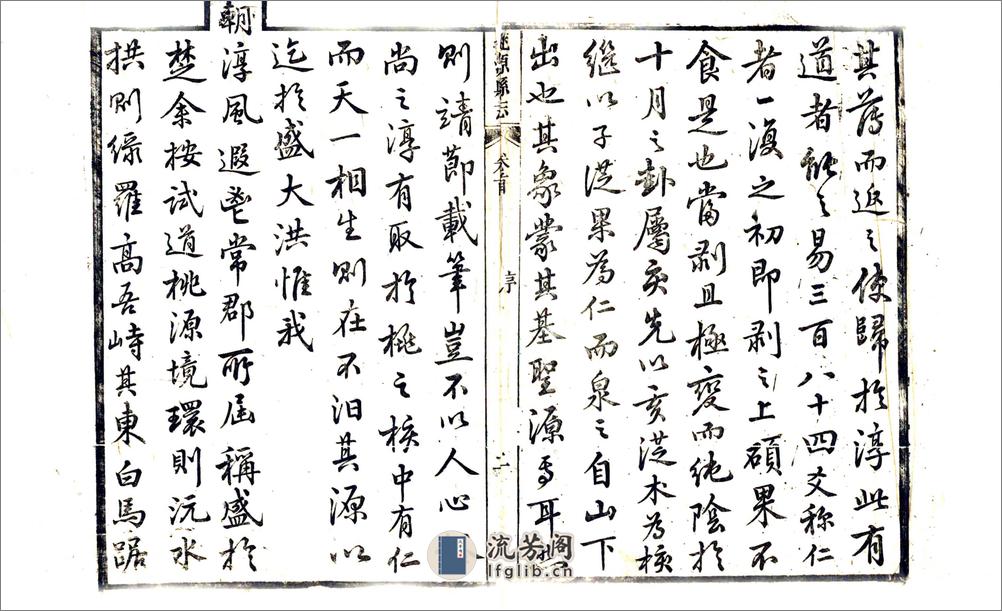 其薄而返之使歸於淳此有
道者能之易三百八十四爻称仁
者一復之初即剥之上碩果不
食是也當剥且極變而純陰於
十月之卦屬亥先以亥从木為核
繼以子从果為仁而泉之自山下
出也其象蒙其基聖源焉耳
桃源縣志
卷首
序
二
則靖節載筆豈不以人心
尚之淳有取於桃之核中有仁
而天一相生則在不汨其源以
迄於盛大洪惟我
朝
淳風遐鬯常郡所屆稱盛於
楚余按試道桃源境環則沅水
拱則綠羅高吾峙其東白馬踞
流芳閣
lfglib.cn